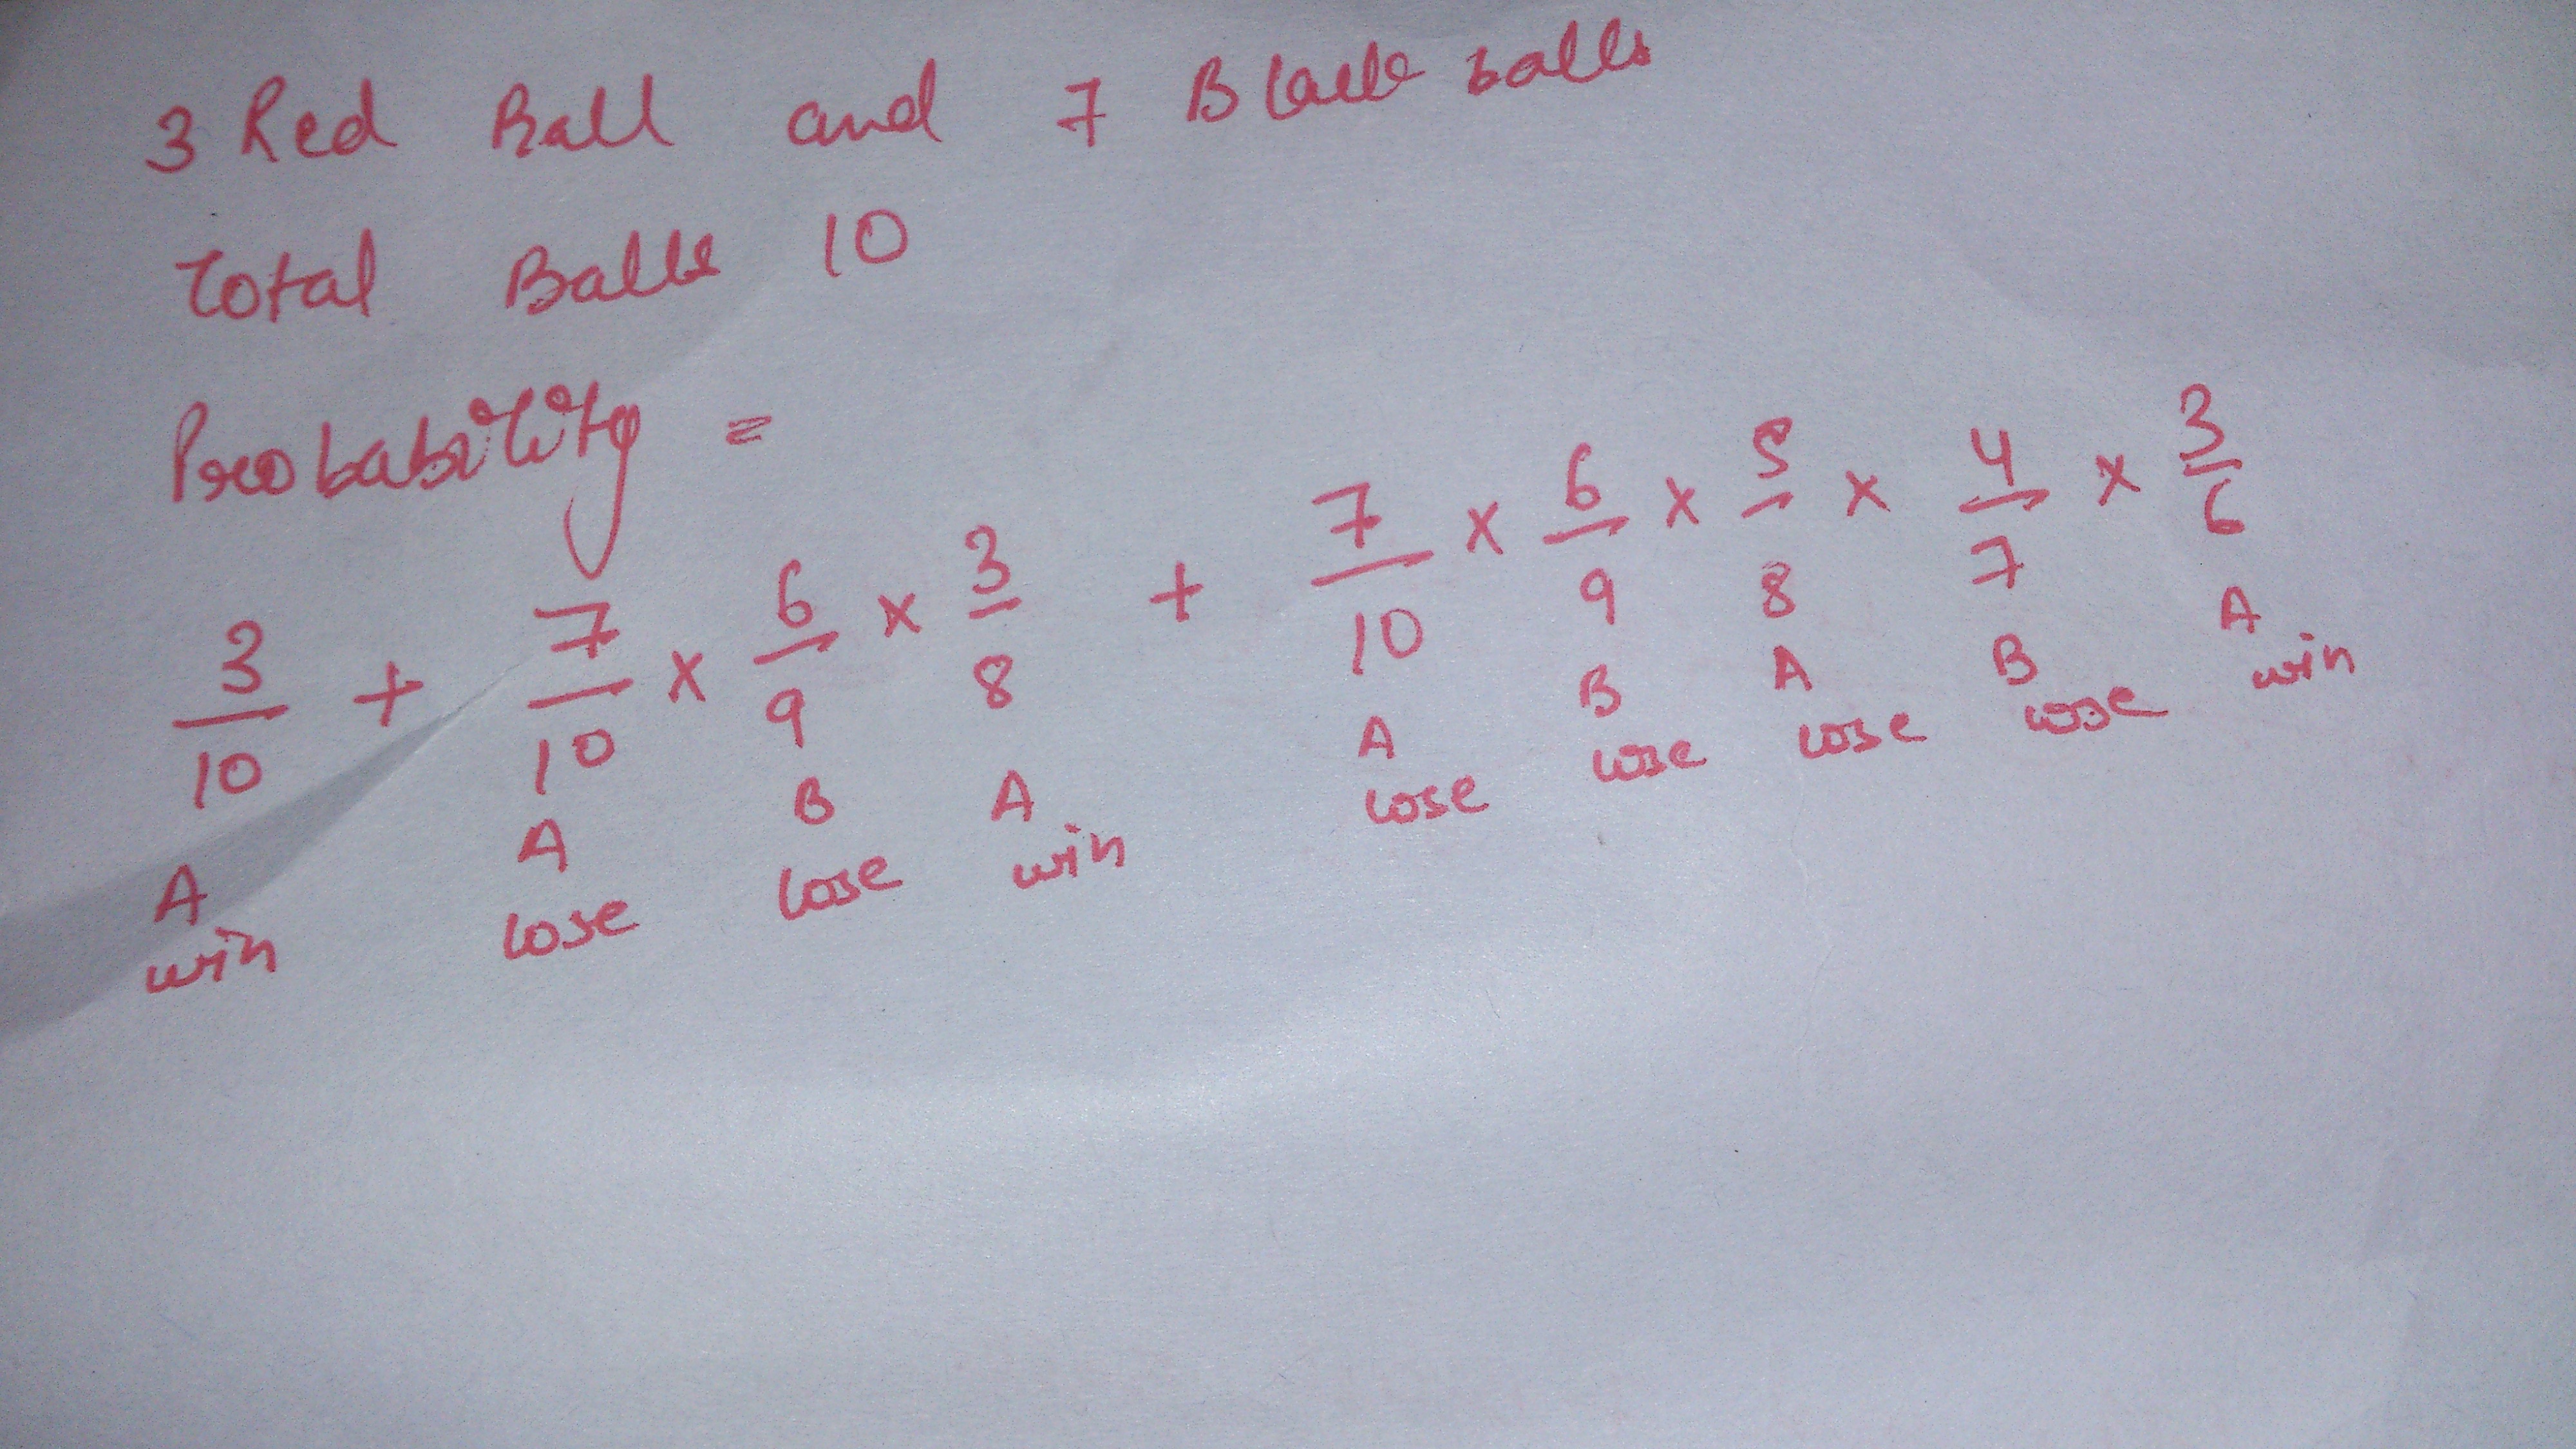 3 Red Ball and 7 Black balls
Total Balls 10
Probability =
3/10 + 7/10 × 6/9 × 3/8 + 7/10 × 6/9 × 5/8 × 4/7 × 3/6
A win A lose B lose A win A lose B lose A lose B lose A win